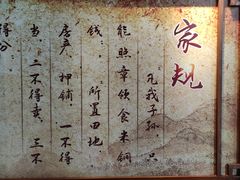 家规
凡我子孙：只
能照章领食米铜
钱：所置田地·
房产 押铺，一不得
当，二不得卖，三不
得分